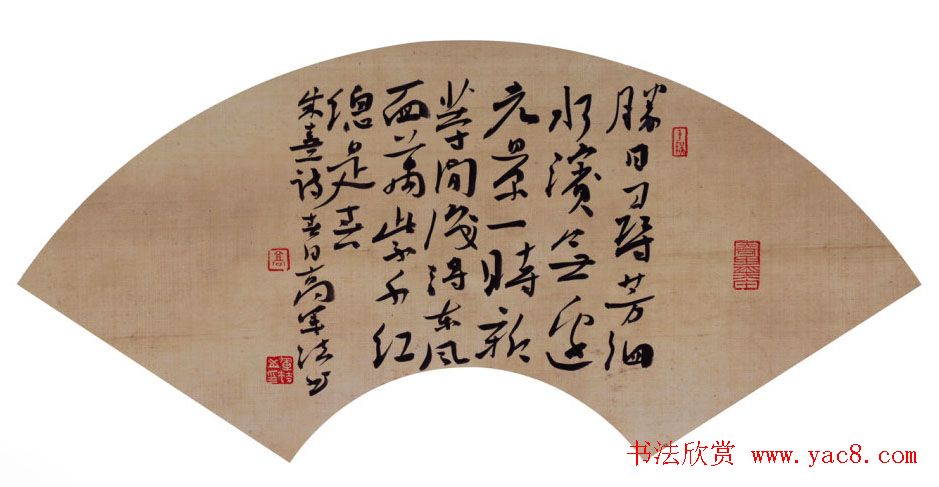 勝日尋芳泗
水濱無邊
光景一時新
等閒識得东风
面萬紫千红
總是春
朱熹詩春日高军法书
书法欣赏 www.yac8.com